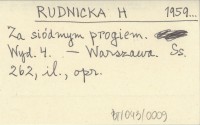 RUDNICKA H 1959...
Za siódmym progiem.
Wyd. 4. - Warszawa. Ss.
262, il., opr.